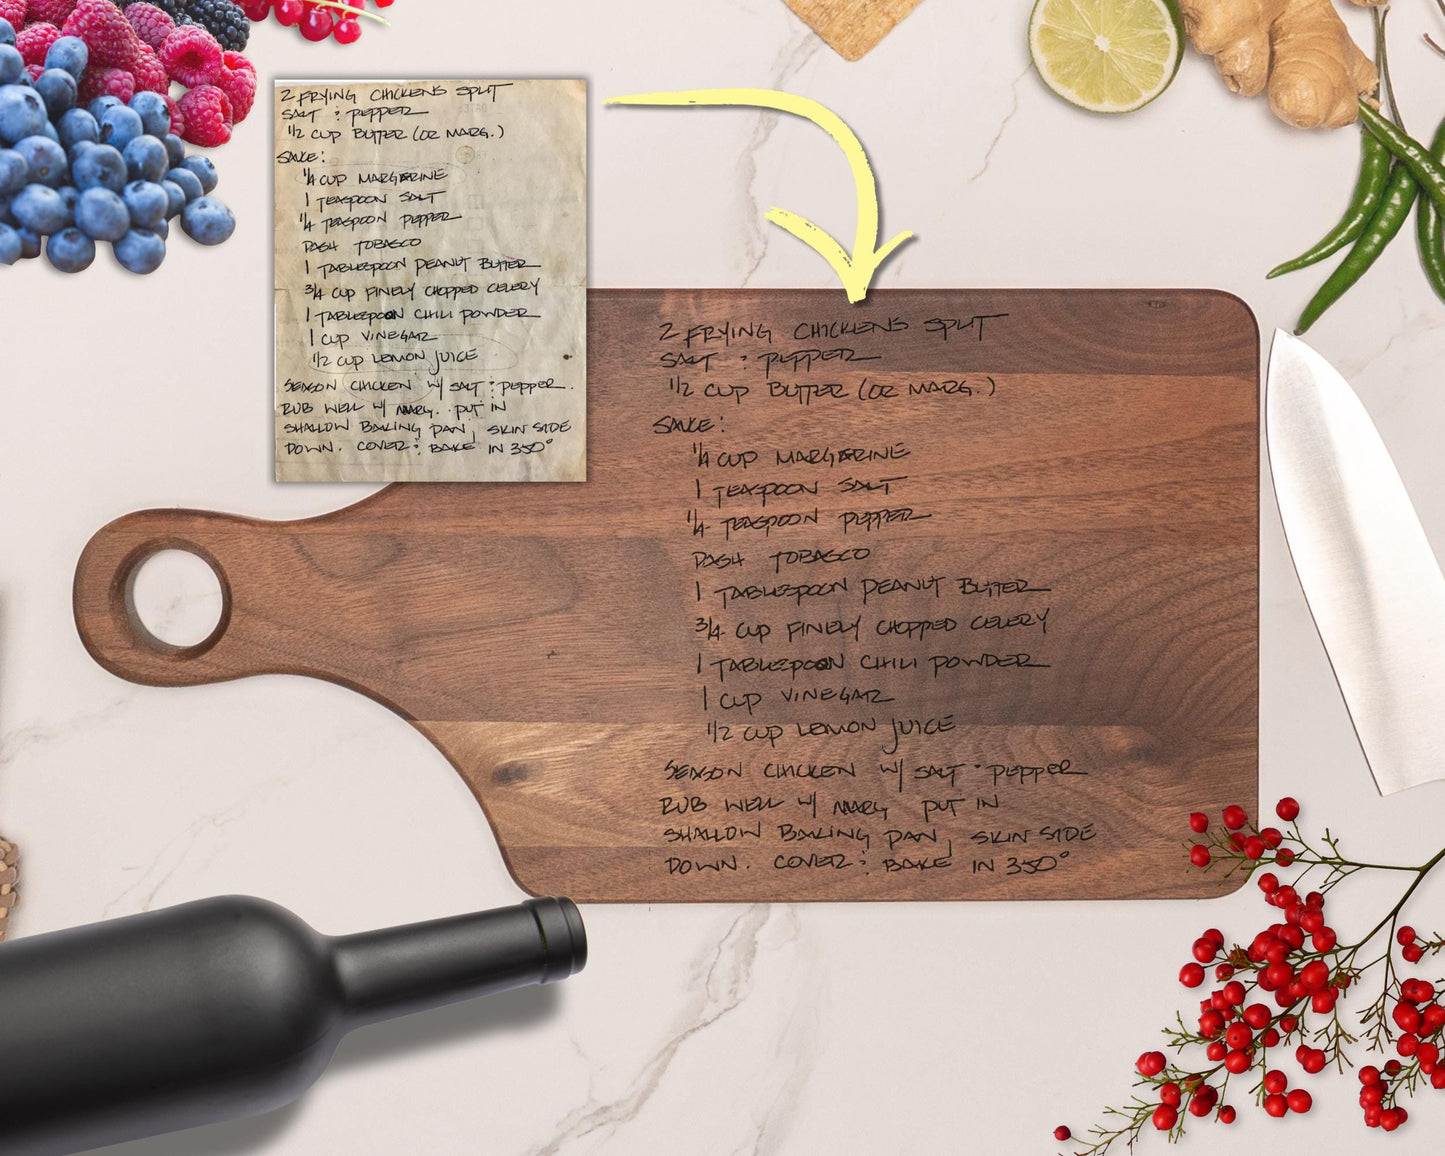 2 FRYING CHICKENS SPLIT
SALT & PEPPER
1/2 CUP BUTTER (OR MARG.)
SAUCE:
1/4 CUP MARGARINE
1 TEASPOON SALT
1/4 TEASPOON PEPPER
DASH TOBASCO
1 TABLESPOON PEANUT BUTTER
3/4 CUP FINELY CHOPPED CELERY
1 TABLESPOON CHILI POWDER
1 CUP VINEGAR
1/2 CUP LEMON JUICE
SEASON CHICKEN W/ SALT & PEPPER.
RUB WELL W/ MARG. PUT IN
SHALLOW BAKING PAN, SKIN SIDE
DOWN. COVER & BAKE IN 350°
2 FRYING CHICKENS SPLIT
SALT & PEPPER
1/2 CUP BUTTER (OR MARG.)
SAUCE:
1/4 CUP MARGARINE
1 TEASPOON SALT
1/4 TEASPOON PEPPER
DASH TOBASCO
1 TABLESPOON PEANUT BUTTER
3/4 CUP FINELY CHOPPED CELERY
1 TABLESPOON CHILI POWDER
1 CUP VINEGAR
1/2 CUP LEMON JUICE
SEASON CHICKEN W/ SALT & PEPPER
RUB WELL W/ MARG, PUT IN
SHALLOW BAKING PAN, SKIN SIDE
DOWN. COVER & BAKE IN 350°